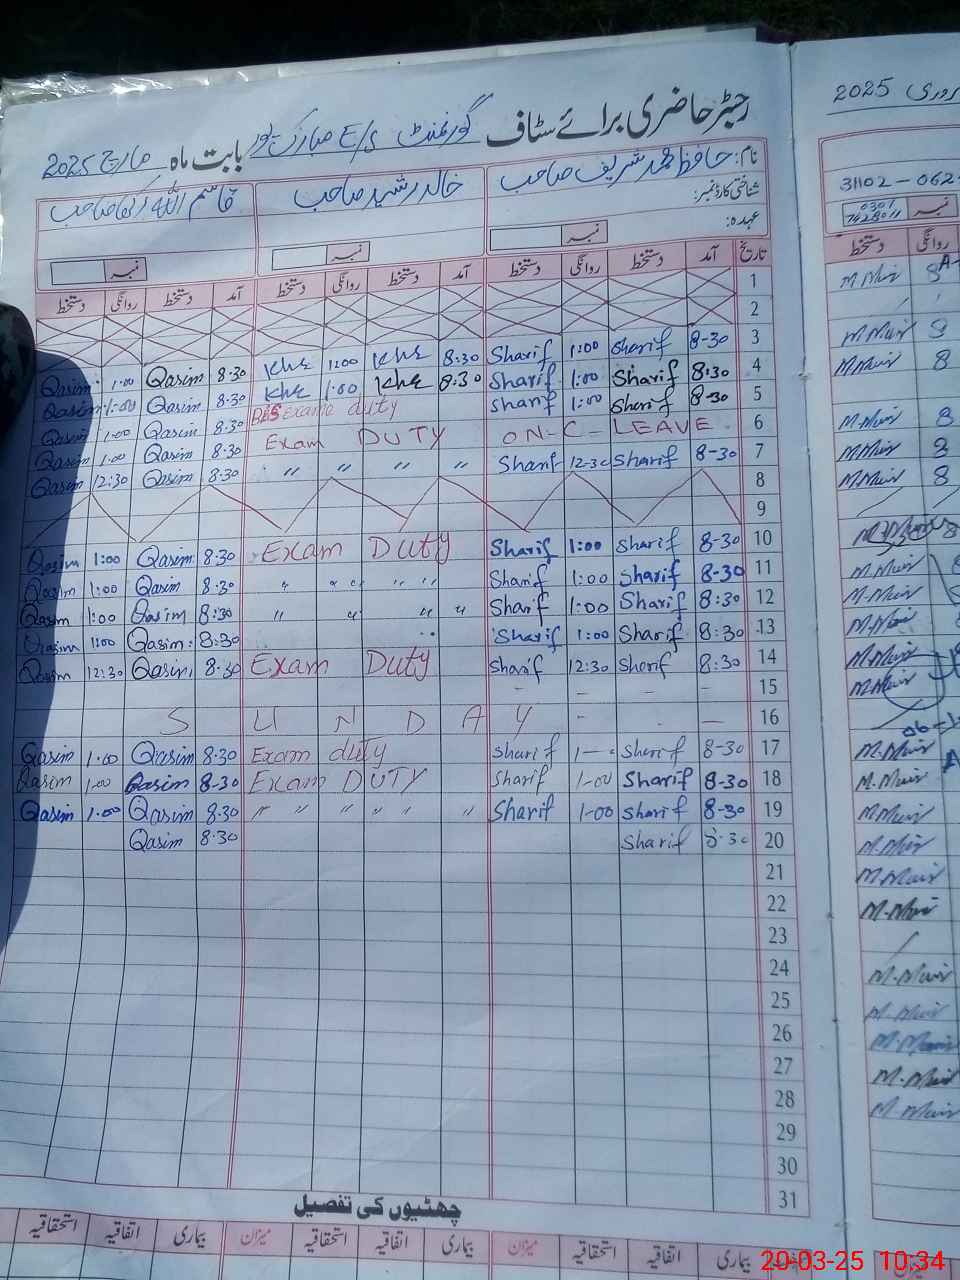 رجسٹر حاضری برائے سٹاف گورنمنٹ E/S مبارک پور بابت ماہ مارچ 2025
نام: حافظ محمد شریف صاحب خالد رشید صاحب قاسم اللہ صاحب
شناختی کارڈ نمبر:
عہدہ:
نمبر نمبر نمبر
تاریخ آمد دستخط روانگی دستخط آمد دستخط روانگی دستخط آمد دستخط روانگی دستخط
1
2
3 8-30 Sharif 1:00 Sharif 8:30 1:00 8.30 Qasim 1:00 Qasim
4 8:30 Sharif 1:00 Sharif 8:30 1:00 8.30 Qasim 1:00 Qasim
5 8-30 Sharif 1:00 Sharif Exams duty 8.30 Qasim 1:00 Qasim
6 ON-C-LEAVE Exam DUTY 8.30 Qasim 1:00 Qasim
7 8-30 Sharif 12-30 Sharif " " " " 8.30 Qasim 12:30 Qasim
8
9
10 8-30 Sharif 1:00 Sharif Exam Duty 8.30 Qasim 1:00 Qasim
11 8-30 Sharif 1:00 Sharif " " " " " 8.30 Qasim 1:00 Qasim
12 8:30 Sharif 1:00 Sharif " " " " 8:30 Qasim 1:00 Qasim
13 8:30 Sharif 1:00 Sharif 8:30 Qasim 1:00 Qasim
14 8:30 Sharif 12:30 Sharif Exam Duty 8.30 Qasim 12:30 Qasim
15 - - -
16 SUNDAY - - -
17 8-30 Sharif 1-- Sharif Exam duty 8.30 Qasim 1.00 Qasim
18 8-30 Sharif 1-00 Sharif Exam DUTY 8.30 Qasim 1-00 Qasim
19 8-30 Sharif 1-00 Sharif " " " " " " 8.30 Qasim 1.00 Qasim
20 8-30 Sharif 8.30 Qasim
21
22
23
24
25
26
27
28
29
30
31
چھٹیوں کی تفصیل
بیماری اتفاقیہ استحقاقیہ میزان بیماری اتفاقیہ استحقاقیہ میزان بیماری اتفاقیہ استحقاقیہ
2025
31102-062
0301
7428011
نمبر
روانگی دستخط
8 M.Mui
9 M.Mui
8 M.Mui
8 M.Mui
8 M.Mui
8 M.Mui
M.Mui
M.Mui
M.Mui
M.Mui
M.Mui
M.Mui
M.Mui
M.Mui
M.Mui
M.Mui
M.Mui
M.Mui
M.Mui
M.Mui
M.Mui
M.Mui
M.Mui
میزان
20-03-25 10:34